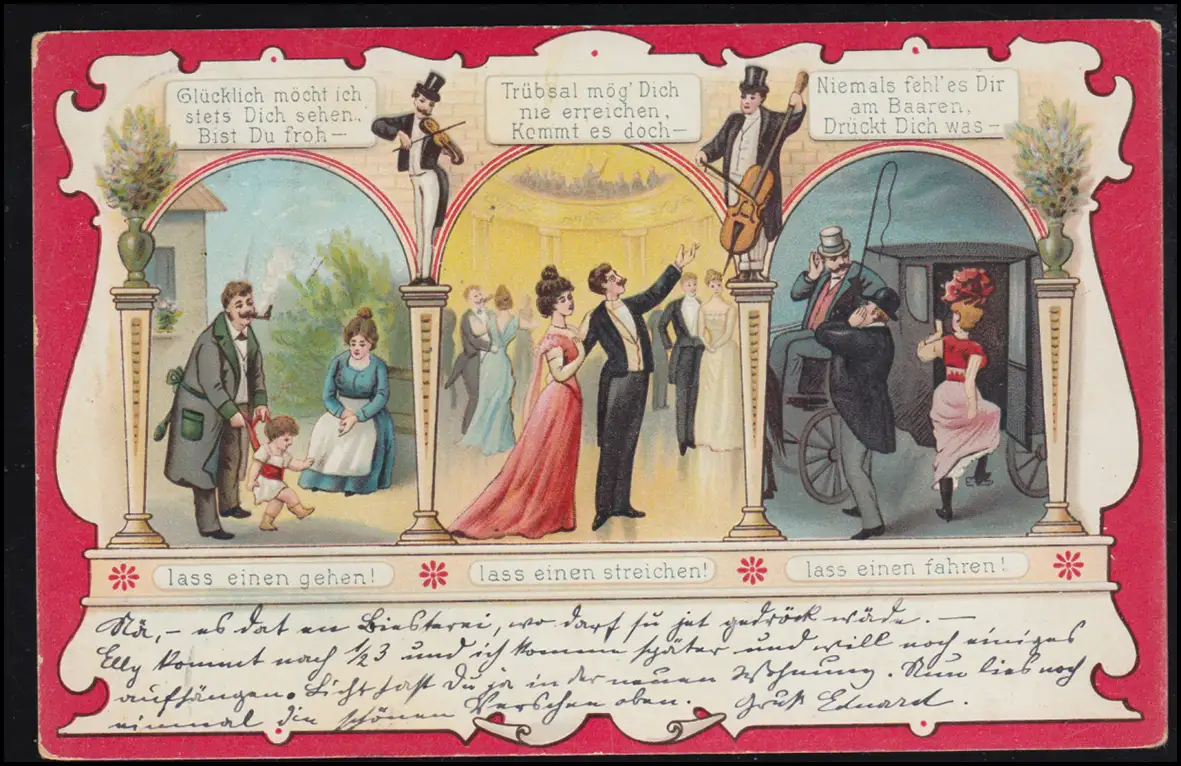 Glücklich möcht ich
stets Dich sehen.,
Bist Du froh—
Trübsal mög' Dich
nie erreichen,
Kommt es doch—
Niemals fehl' es Dir
am Baaren,
Drückt Dich was—
lass einen gehen!
lass einen streichen!
lass einen fahren!
Nä, – es dat en Biesterei, wo darf su jet gedröck wäde. —
Elly kommt nach ½3 und ich komme später und will noch einiges
aufhängen. Licht hast Du ja in der neuen Wohnung. Nun lies noch
einmal die schönen Verschen oben. Gruß Eduard.